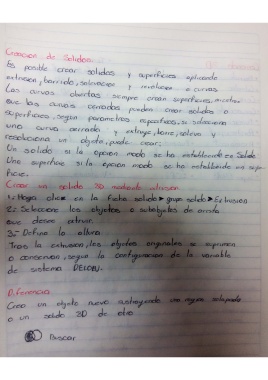 Creacion de Solidos.
Es posible crear solidos y superficies aplicando
extrusion, barrido, solevacion y revolucion a curvas
Las curvas abiertas siempre crean superficies, mientras
que las curvas cerradas pueden crear solidos o
superficies, segun parametros especificos. Si selecciona
una curva cerrada y extruye, barre, soleva y
resoluciona un objeto, puede crear;
Un solido si la opcion modo se ha establecido en Solido
Una superficie si la opcion modo se ha establecido en super-
ficie.
Crear un solido 3D mediante extrusion
1: Haga click en la ficha solido ▸ grupo solido ▸ Extrusion
2: Seleccione los objetos o subobjetos de arista
que desee extruir.
3.- Defina la altura
Tras la extrusion, los objetos originales se suprimen
o conservan, segun la configuracion de la variable
de sistema DELOBJ.
Diferencia
Crea un objeto nuevo sustrayendo una region solapada
o un solido 3D de otro
Buscar